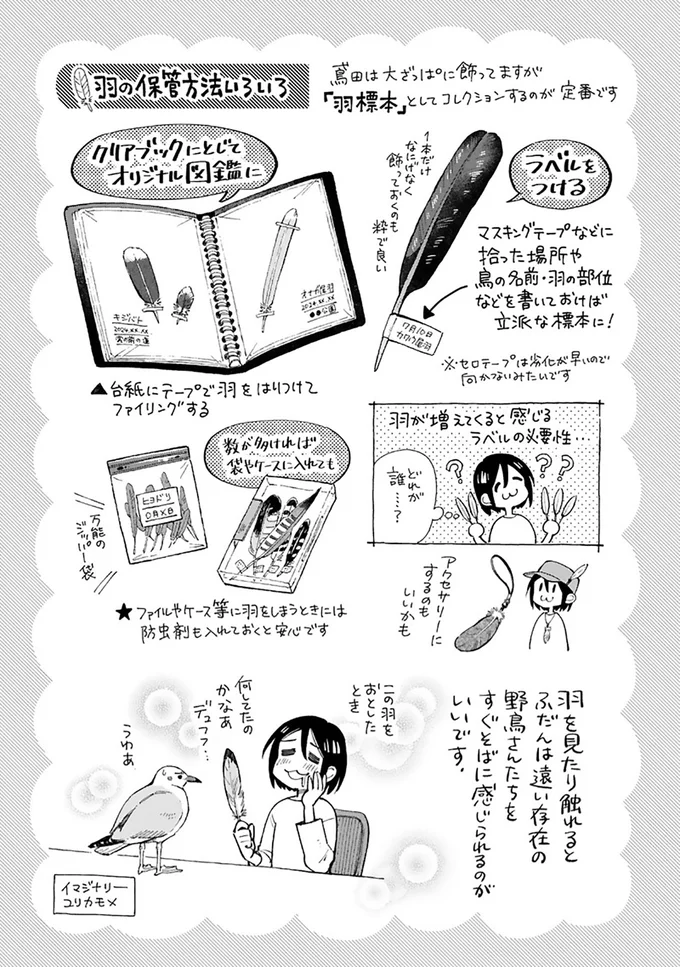 羽の保管方法いろいろ
鳶田は大ざっぱに飾ってますが
「羽標本」としてコレクションするのが定番です
クリアブックにとじて
オリジナル図鑑に
キジバト
2024.XX.XX
家の前の道
オナガ尾羽
2024.XX.XX
●●公園
▲台紙にテープで羽をはりつけて
ファイリングする
1本だけ
なにげなく
飾っておくのも
粋で良い
ラベルを
つける
マスキングテープなどに
拾った場所や
鳥の名前・羽の部位
などを書いておけば
立派な標本に!
7月10日
カワウ尾羽
※セロテープは劣化が早いので
向かないみたいです
数が多ければ
袋やケースに入れても
ヒヨドリ
○月×日
万能の
ジッパー袋
★ファイルやケース等に羽をしまうときには
防虫剤も入れておくと安心です
羽が増えてくると感じる
ラベルの必要性…
どれが
誰……?
???
???
アクセサリーに
するのも
いいかも
羽を見たり触れると
ふだんは遠い存在の
野鳥さんたちを
すぐそばに感じられるのが
いいです。
この羽を
おとした
とき
何してたの
かなあ
デュフフ…
うわあ
イマジナリー
ユリカモメ